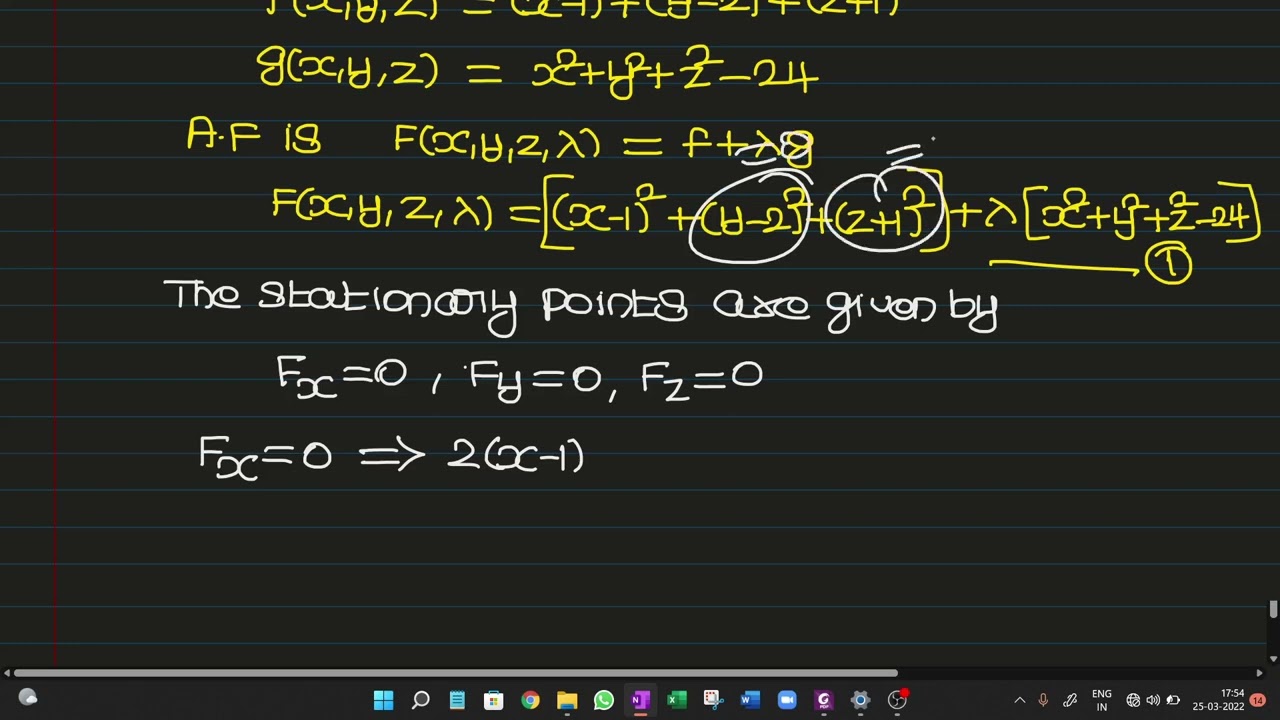 f(x,y,z) = (x-1)²+(y-2)²+(z+1)²
g(x,y,z) = x²+y²+z²-24
A.F is F(x,y,z,λ) = f+λg =0 =
F(x,y,z,λ) = [(x-1)²+(y-2)²+(z+1)²]+λ[x²+y²+z²-24]
①
The stationary points are given by
Fx=0, Fy=0, Fz=0
Fx=0 ⇒ 2(x-1)
ENG
IN
17:54
25-03-2022
14